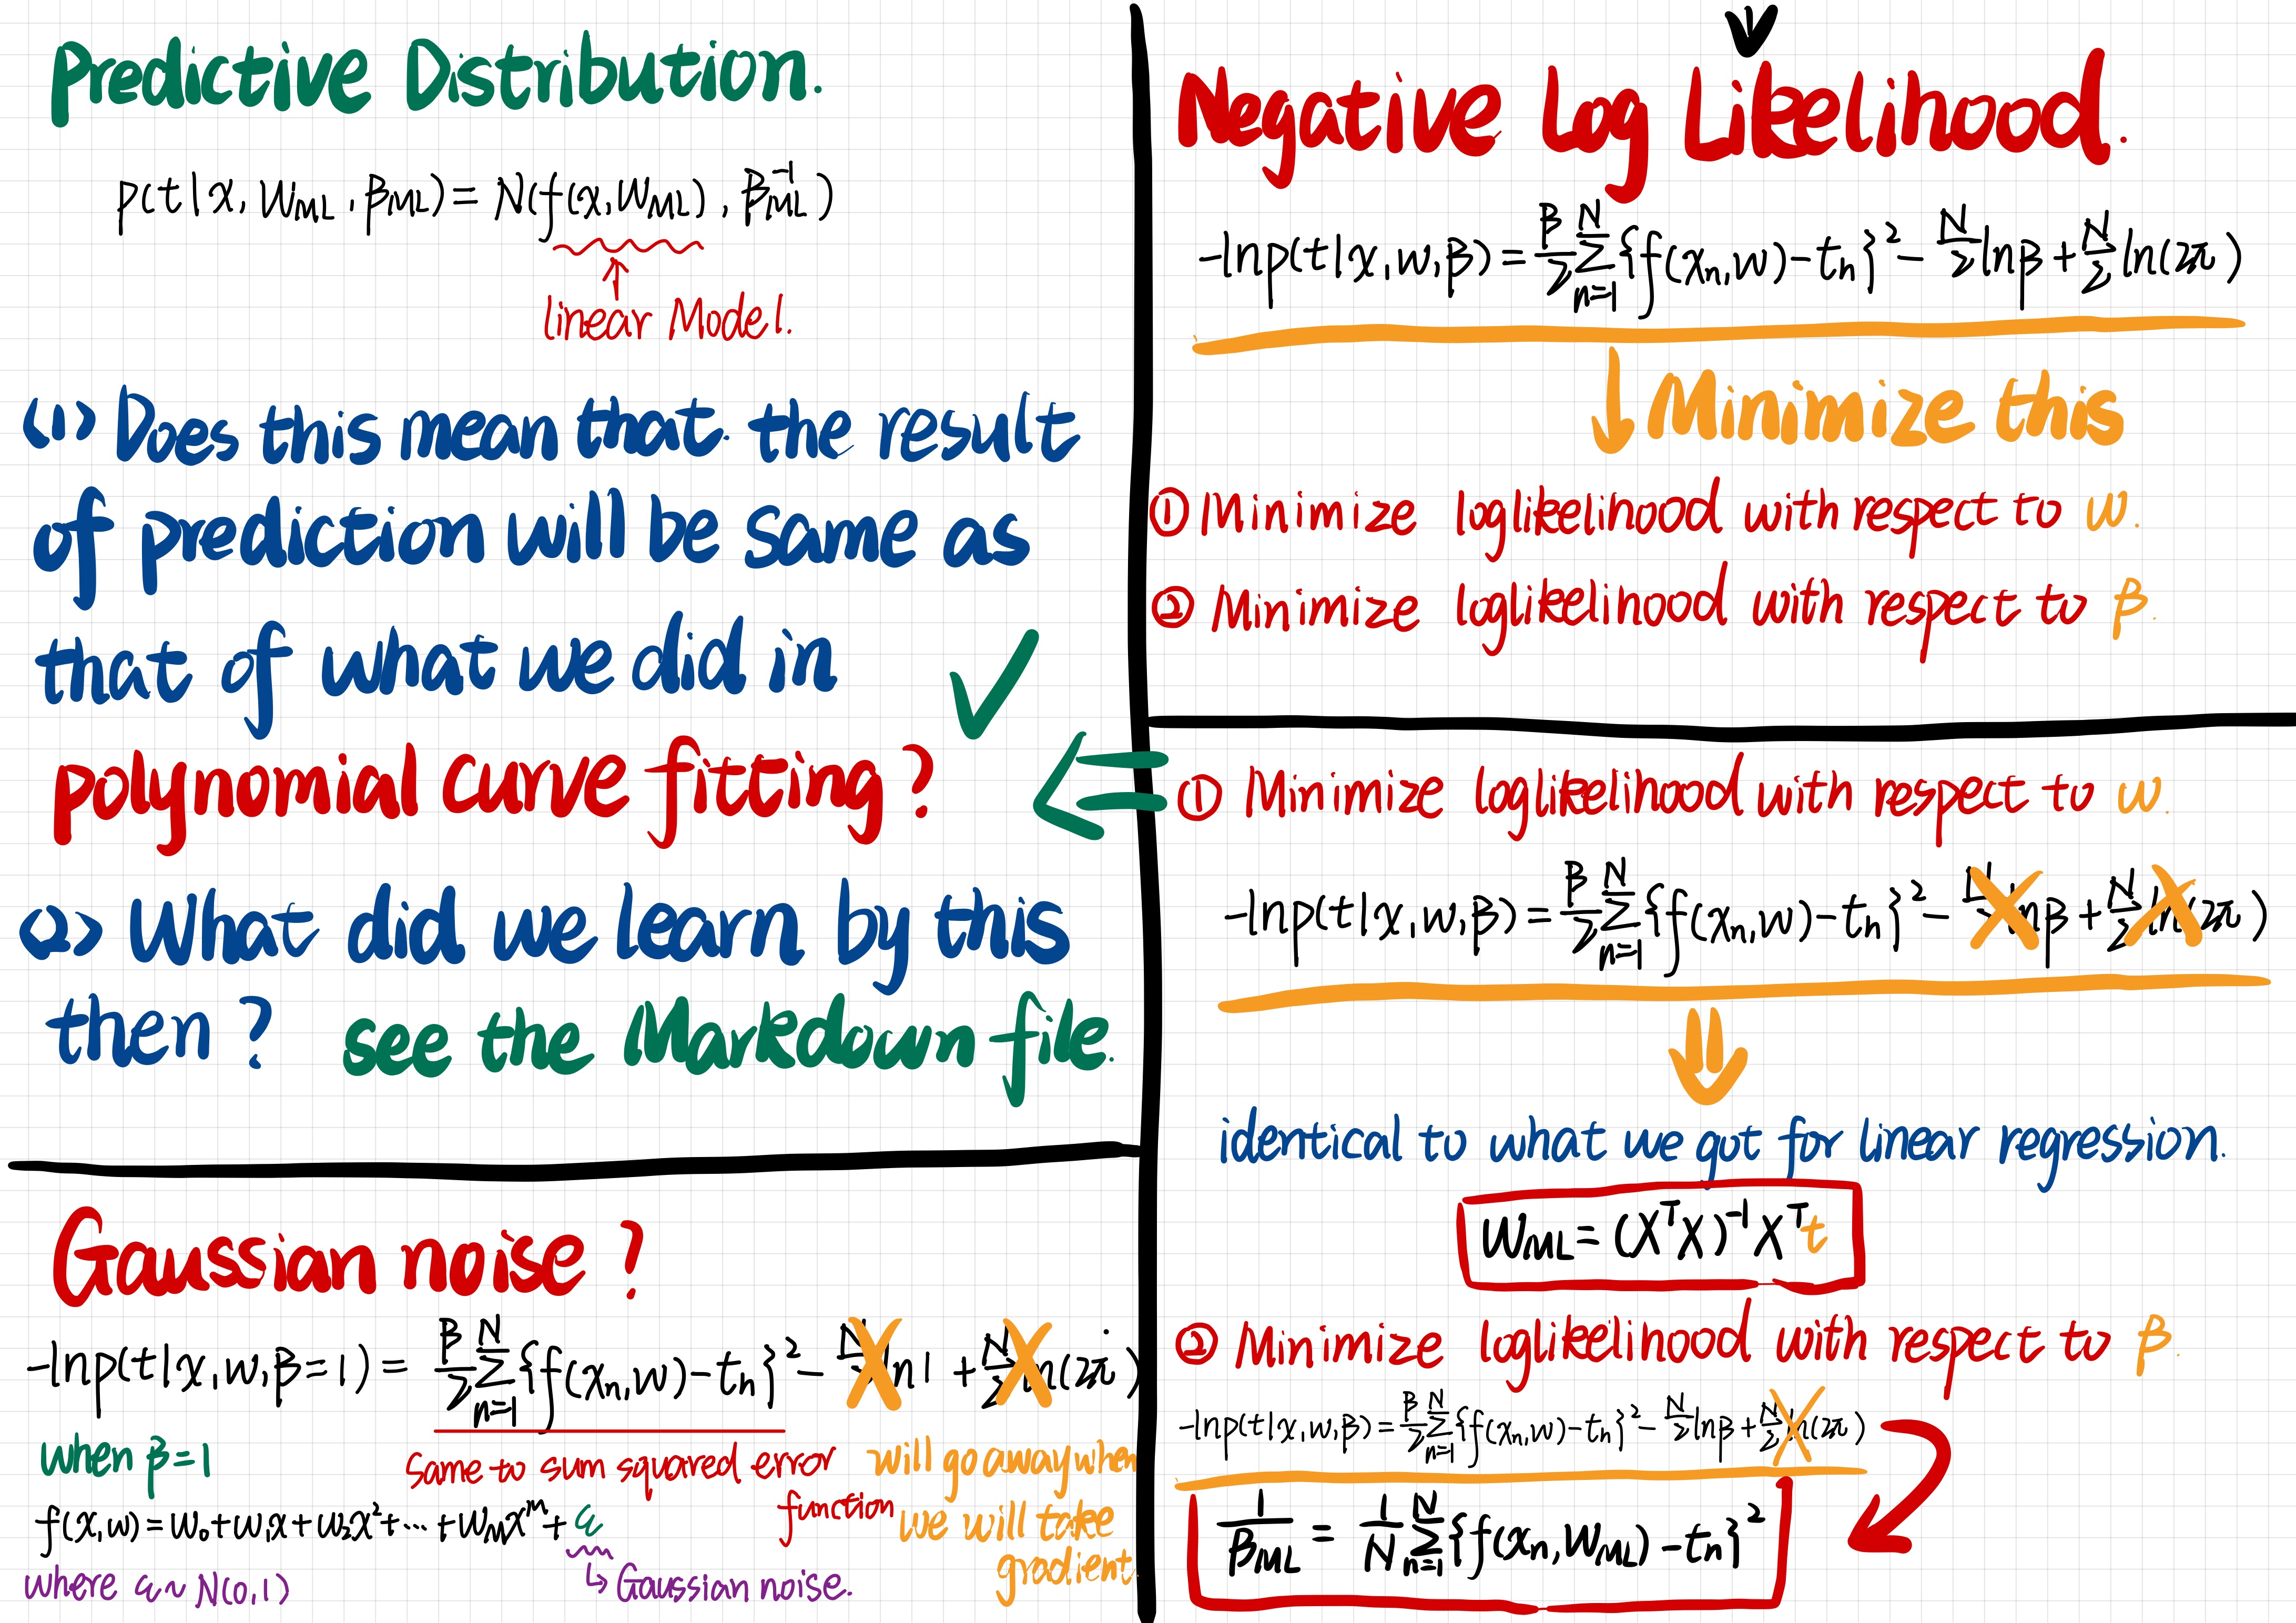 Predictive Distribution.
p(t|x, W_ML, β_ML) = N(f(x, W_ML), β_ML^-1)
linear Model.
<1> Does this mean that the result
of prediction will be same as
that of what we did in
polynomial curve fitting? ✓
<2> What did we learn by this
then? see the Markdown file.
Gaussian noise?
-ln p(t|x, w, β=1) = β/2 Σ_{n=1}^{N} {f(x_n, w) - t_n}^2 - N/2 ln 1 + N/2 ln(2π)
when β=1
same to sum squared error
function
will go away when
we will take
gradient
f(x, w) = w_0 + w_1x + w_2x^2 + ... + w_Mx^m + ε
where ε ~ N(0,1)
↳ Gaussian noise.
Negative Log Likelihood.
-ln p(t|x, w, β) = β/2 Σ_{n=1}^{N} {f(x_n, w) - t_n}^2 - N/2 ln β + N/2 ln(2π)
↓ Minimize this
① Minimize loglikelihood with respect to w.
② Minimize loglikelihood with respect to β.
① Minimize loglikelihood with respect to w.
-ln p(t|x, w, β) = β/2 Σ_{n=1}^{N} {f(x_n, w) - t_n}^2 - N/2 ln β + N/2 ln(2π)
identical to what we got for linear regression.
W_ML = (X^T X)^-1 X^T t
② Minimize loglikelihood with respect to β.
-ln p(t|x, w, β) = β/2 Σ_{n=1}^{N} {f(x_n, w) - t_n}^2 - N/2 ln β + N/2 ln(2π)
1/β_ML = 1/N Σ_{n=1}^{N} {f(x_n, W_ML) - t_n}^2